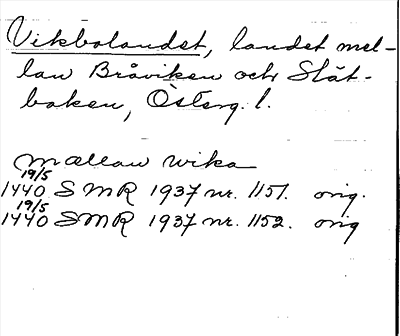 Vikbolandet, landet mel-
lan Bråviken och Slät-
baken, Österg. l.
mællan wika
19/5
1440 SMR 1937 nr. 1151. orig.
19/5
1440 SMR 1937 nr. 1152. orig